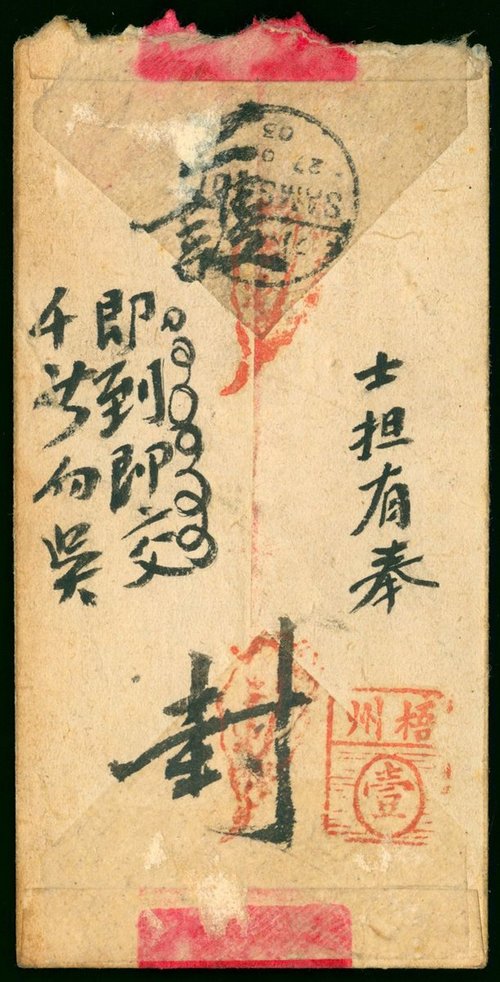 士担有奉
護封
即到即交
千祈勿吳
梧州
壹
27
03